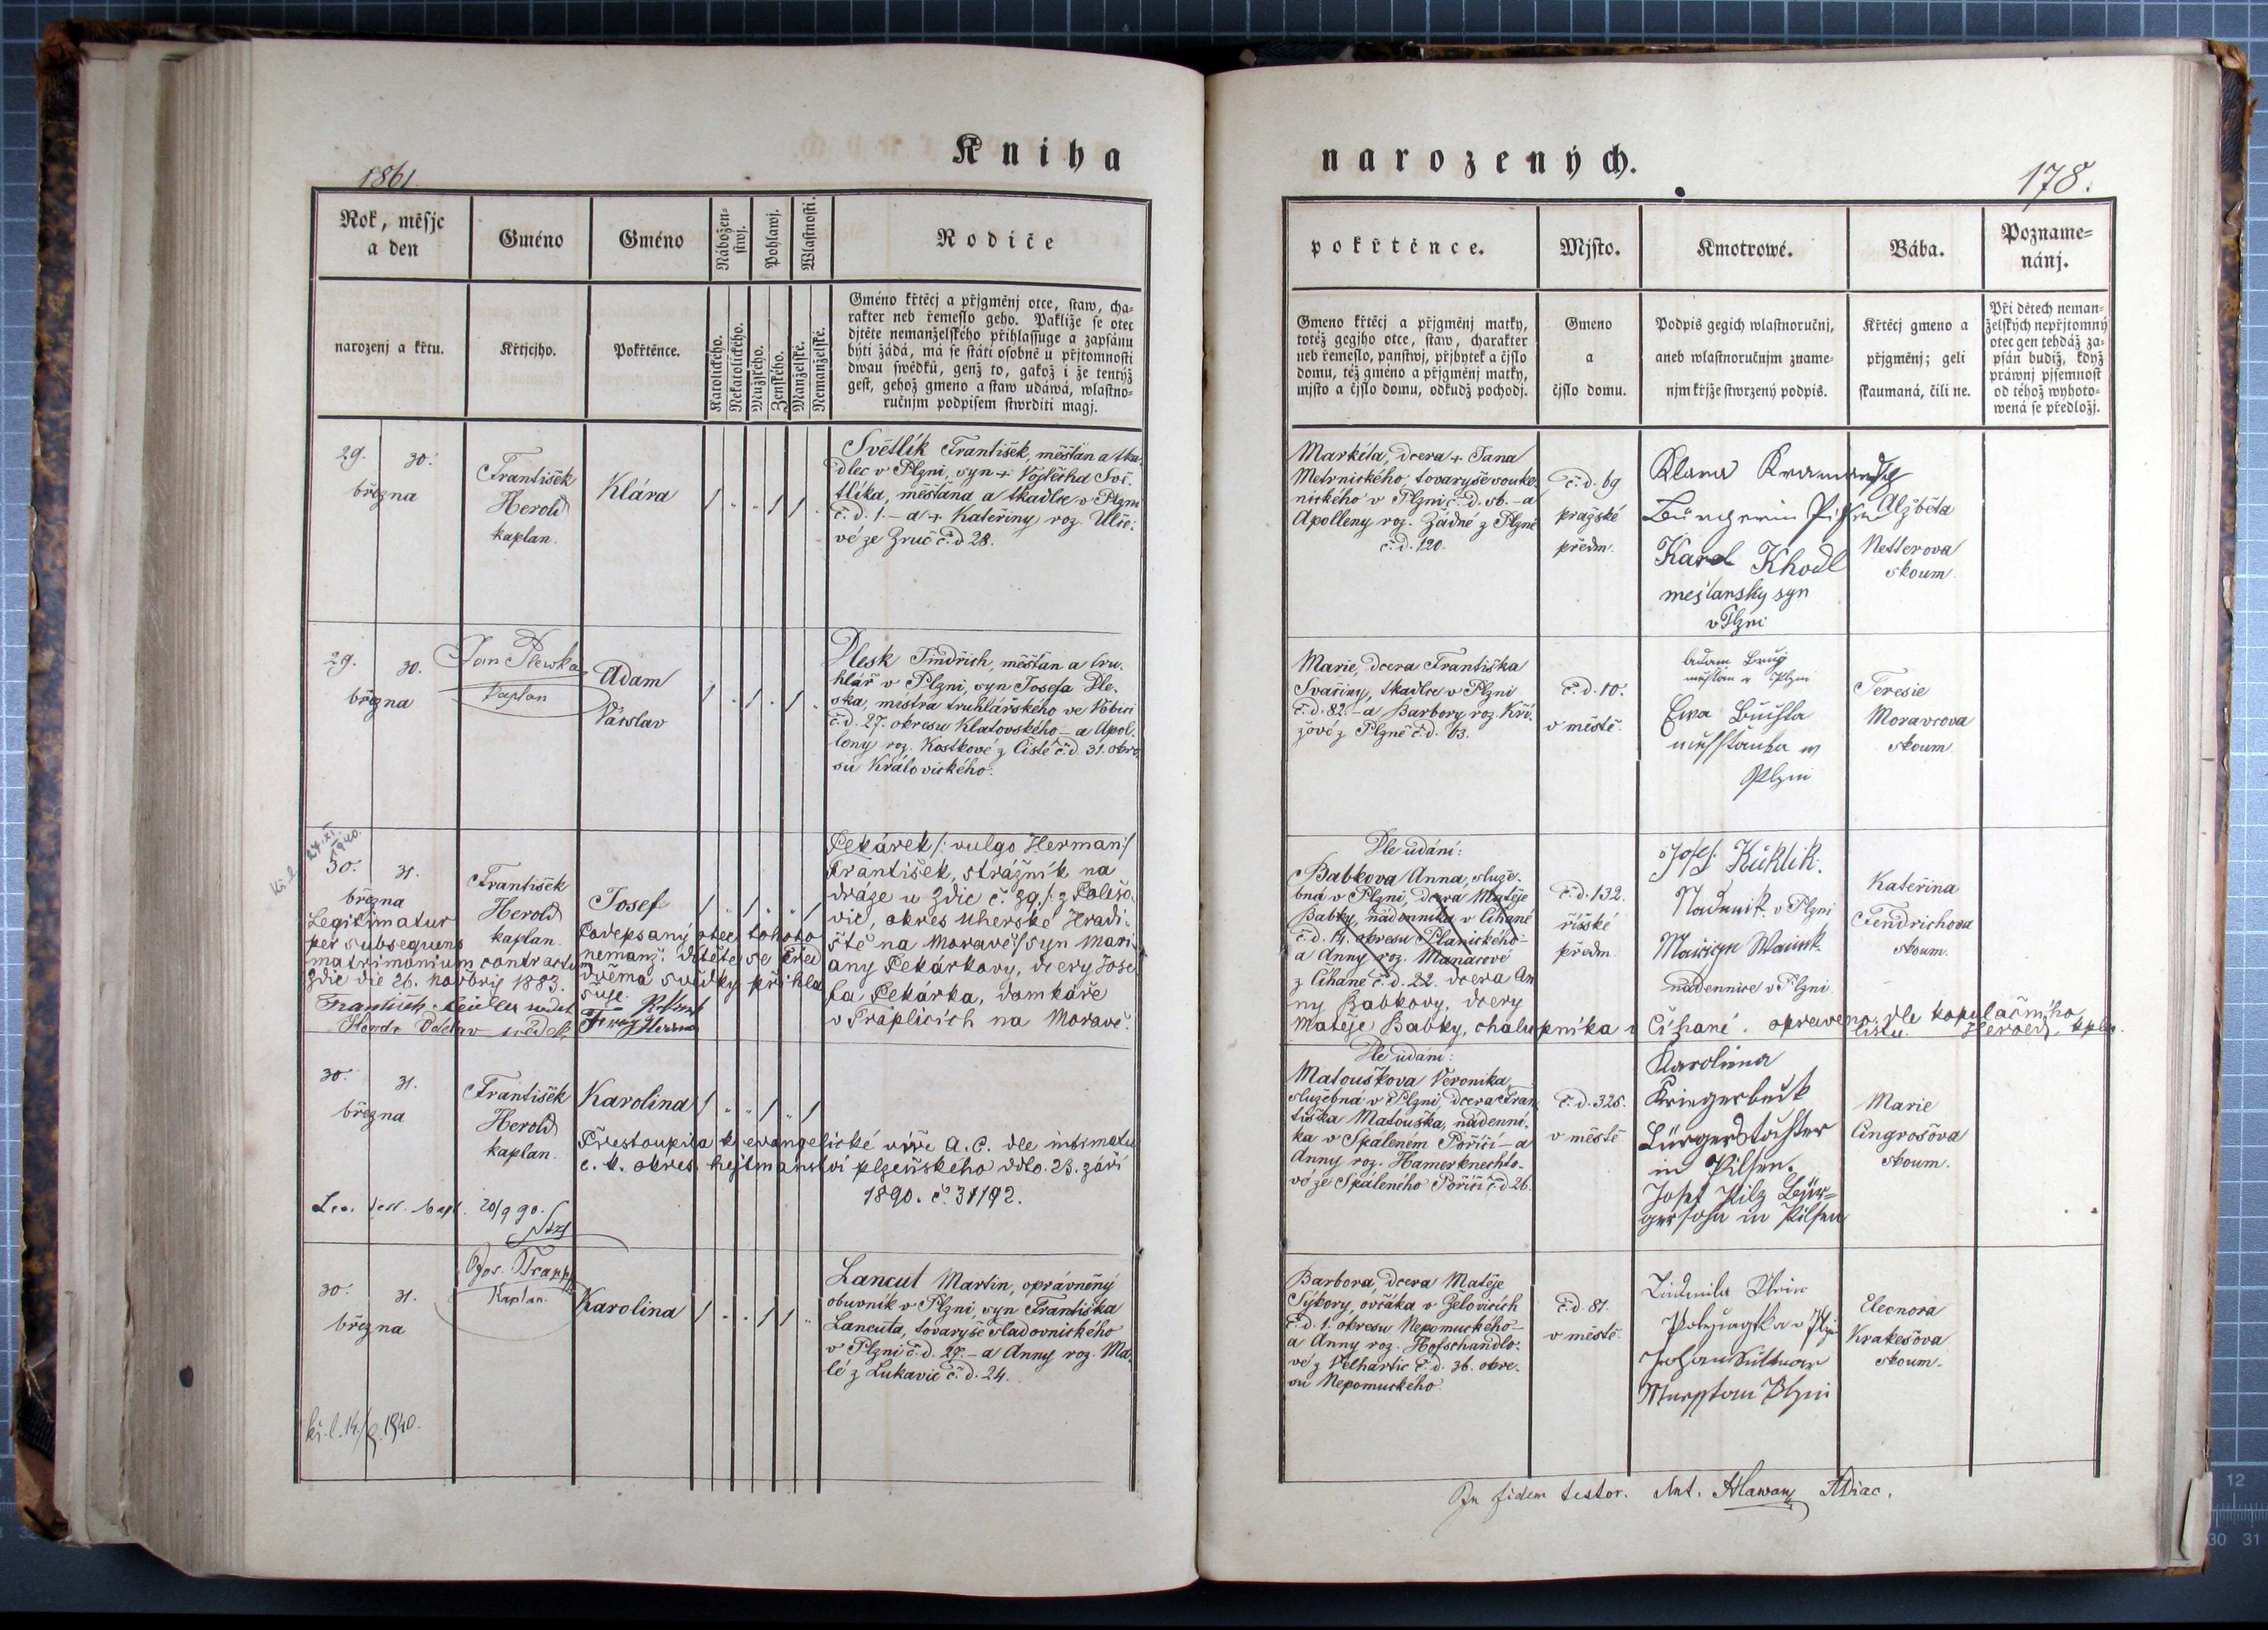 Kniha
1861.
Rok, měsjc
a den
narozenj a křtu.
Gméno
Křtjcjho.
Gméno
Pokřtěnce.
Nábožen-
stwj.
Pohlawj.
Wlastnosti.
Katolického.
Nekatolického.
Mužského.
Ženského.
Manželské.
Nemanželské.
Rodiče
Gméno křtěcj a přjgměnj otce, staw, cha-
rakter neb řemeslo geho. Pakliže se otec
djtěte nemanželského přihlassuge a zapsánu
býti žádá, má se státi osobně u přjtomnosti
dwau swědků, genž to, gakož i že tentýž
gest, gehož gmeno a staw udáwá, wlastno-
ručnjm podpisem stwrditi magj.
29. 30.
března
František
Herold
kaplan.
Klára
Světlík František, měšťan a tka-
dlec v Plzni, syn + Vojtěcha Svě-
tlíka, měšťana a tkadlce v Plzni
č. d. 1. – a + Kateřiny roz. Ulče-
vé ze Zruč č. d 28.
29. 30.
března
Jan Plewka
Kaplan
Adam
Václav
Plesk Jindřich, měšťan a tru-
hlář v Plzni, syn Josefa Ple-
ska, mistra truhlářského ve Vobici
č. d. 27. okresu Klatovského – a Apol-
leny roz. Kostkové z Čisté č. d 31. okre-
su Královického.
27. XI. 1940.
Kř. l.
30. 31.
března
Legitimatur
per subsequens
matrimonium contractum
Zdic die 26. novbris 1883.
František
Herold
kaplan.
Josef
Podepsaný otec tohoto
nemanž. dítěte se před
dvema svědky přihla
šuje.
Pekárek /: vulgo Herman :/
František, strážník na
dráze u Zdic č. 39. /: z Polešo-
vic, okres uherské Hradi-
ště na Moravě :/ syn Mari-
any Pekárkovy, dcery Jose
fa Pekárka, domkáře
v Traplicích na Moravě.
30. 31.
března
František
Herold
kaplan.
Karolina
Přestoupila k evangelické víře A. C. dle intimatu
c. k. okres. hejtmanství plzeňského ddto. 23. září
1890. č. 31192.
20/9 90.
30. 31.
března
Jos. Trapp
Kaplan.
Karolina
Lancut Martin, oprávněný
obuvník v Plzni, syn Františka
Lancuta, tovaryše sladovnického
v Plzni č. d. 29. – a Anny roz. Ma-
lé z Lukavic č. d. 24.
kř. l. 14./2. 1940.
narozených.
178.
pokřtěnce.
Gmeno křtěcj a přjgměnj matky,
totéž gegjho otce, staw, charakter
neb řemeslo, panstwj, přjbytek a čjslo
domu, též gméno a přjgměnj matky,
mjsto a čjslo domu, odkudž pochodj.
Mjsto.
Gmeno
a
čjslo domu.
Kmotrowé.
Podpis gegich wlastnoručnj,
aneb wlastnoručnjm zname-
njm křjže stwrzený podpis.
Bába.
Křtěcj gmeno a
přjgměnj; geli
skaumaná, čili ne.
Pozname-
nánj.
Při dětech neman-
želských nepřjtomný
otec gen tehdáž za-
psán budiž, když
práwnj pjsemnost
od téhož wyhoto-
wená se předložj.
Markéta, dcera + Jana
Metrnického, tovaryše souke-
nického v Plzni č. d. 56. – a
Apolleny roz. Zádné z Plzně
č. d. 120.
č. d. 69
pražské
předm.
Klara
Karel Khodl
mešťanský syn
v Plzni
Alžběta
Netterova
skoum.
Marie, dcera Františka
Svačiny, tkadlce v Plzni
č. d. 82. – a Barbory roz. Kří-
žové z Plzně č. d. 63.
č. d. 10.
v městě.
měšťan v Plzni
Ewa Buchta
Plzni
Teresie
Moravcova
skoum.
Dle udání:
Babkova Anna, služe-
bná v Plzni, dcera Matěje
Babky, nádenníka v Číhané
č. d. 14. okresu Planického –
a Anny roz. Manacové
z Číhané č. d. 22. dcera An
ny Babkovy, dcery
Matěje Babky, chalupníka v Číhané. opraveno dle kopulačního
listu. Herold, kpln.
č. d. 132.
říšské
předm.
Josef Kuklik.
Nadenik v Plzni
nádennice v Plzni
Kateřina
Jendrichova
skoum.
Dle udání:
Matouškova Veronika,
služebná v Plzni, dcera Fran-
tiška Matouška, nádenní-
ka v Spáleném Poříčí – a
Anny roz. Hamerknechto-
vé ze Spáleného Poříčí č. d 26.
č. d. 325.
v městě
Karolina
Kriegerbeck
Bürgerstochter
in Pilsen.
Josef Pilz Bür-
gersohn in Pilsen
Marie
Cingrošova
skoum.
Barbora, dcera Matěje
Sýkory, ovčáka v Želovicích
č. d. 1. okresu Nepomuckého –
a Anny roz. Hofschandlo-
vé z Velhartic č. d. 36. okre-
su Nepomuckého.
č. d. 81.
v městě
Ludmila
Plzni
Eleonora
Krakešova
skoum.
In fidem testor. Ant. Hlawan